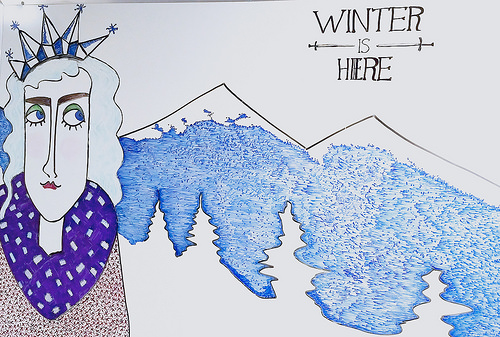 WINTER
IS
HERE